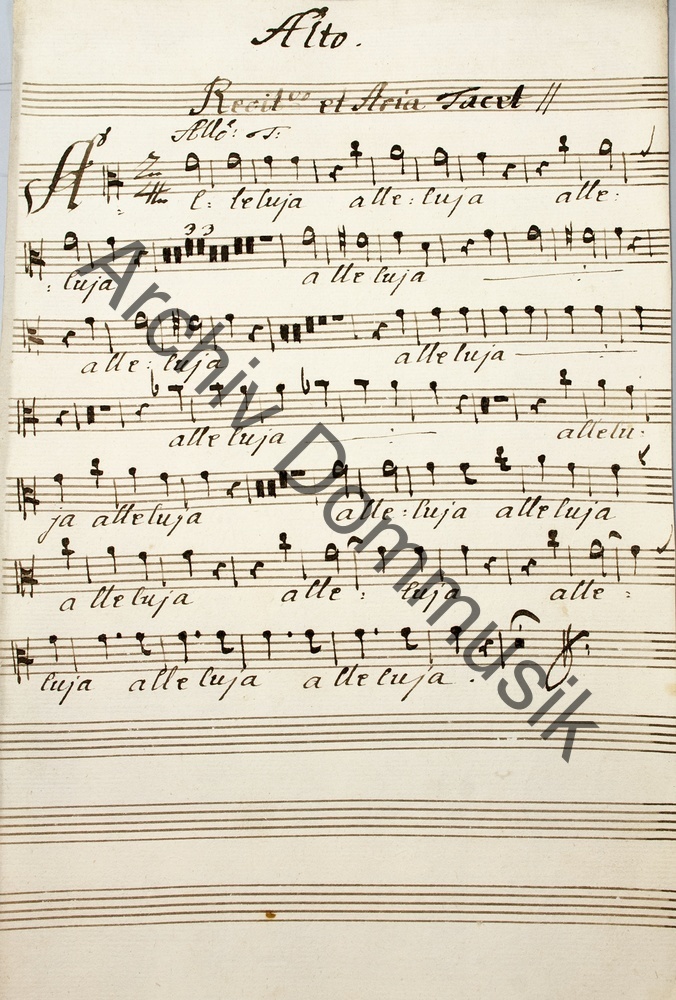 Alto.
Recit.vo et Aria Tacet //
Allo: T:
Al: leluja alle: luja alle:
: luja alleluja
33
alle: luja alleluja
alleluja allelu:
ja alleluja alle: luja alleluja
alleluja alle: luja alle:
luja alleluja alleluja.
Archiv Dommusik